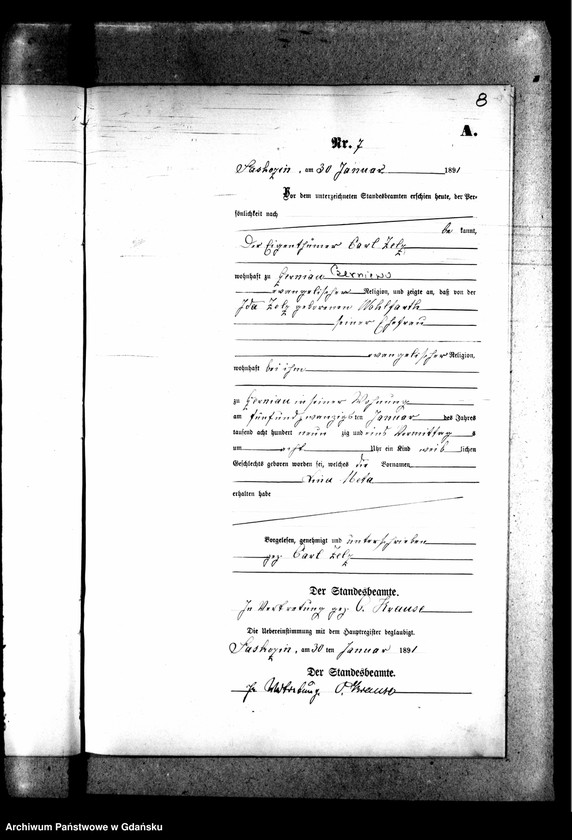 8
A.
Nr. 7
Saskozin, am 30 Januar 1891
Vor dem unterzeichneten Standesbeamten erschien heute, der Per-
sönlichkeit nach
be kannt,
Der Eigenthümer Carl Zelz
wohnhaft zu Czerniau Berniewo
evangelischer Religion, und zeigte an, daß von der
Ida Zelz geborenen Wohlfarth
seiner Ehefrau
evangelischer Religion,
wohnhaft bei ihm
zu Czerniau in seiner Wohnung
am fünfundzwanzigsten Januar des Jahres
tausend acht hundert neun zig und eins Vormittag s
um acht Uhr ein Kind weib lichen
Geschlechts geboren worden sei, welches die Vornamen
Meta
erhalten habe
Vorgelesen, genehmigt und unterschrieben
gez Carl Zelz
Der Standesbeamte.
In Vertretung gez O. Krause
Die Uebereinstimmung mit dem Hauptregister beglaubigt.
Saskozin, am 30 ten Januar 1891
Der Standesbeamte.
In Vertretung. O. Krause
Archiwum Państwowe w Gdańsku